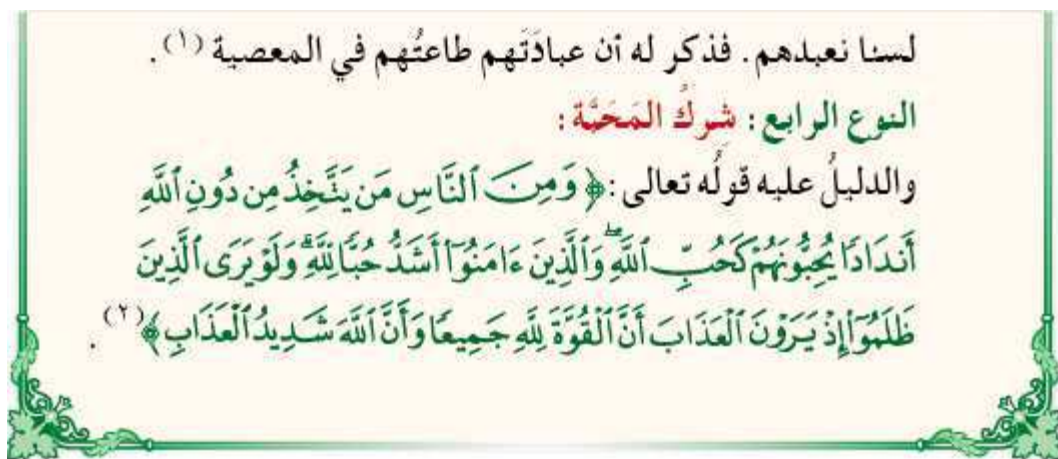 لسنا نعبدهم. فذكر له أن عبادَتَهم طاعتُهم في المعصية (١).
النوع الرابع: شركُ المَحَبَّة:
والدليلُ عليه قولُه تعالى: ﴿وَمِنَ ٱلنَّاسِ مَن يَتَّخِذُ مِن دُونِ ٱللَّهِ
أَندَادًا يُحِبُّونَهُمْ كَحُبِّ ٱللَّهِ ۖ وَٱلَّذِينَ ءَامَنُوٓا۟ أَشَدُّ حُبًّا لِّلَّهِ ۗ وَلَوْ يَرَى ٱلَّذِينَ
ظَلَمُوٓا۟ إِذْ يَرَوْنَ ٱلْعَذَابَ أَنَّ ٱلْقُوَّةَ لِلَّهِ جَمِيعًا وَأَنَّ ٱللَّهَ شَدِيدُ ٱلْعَذَابِ﴾ (٢).